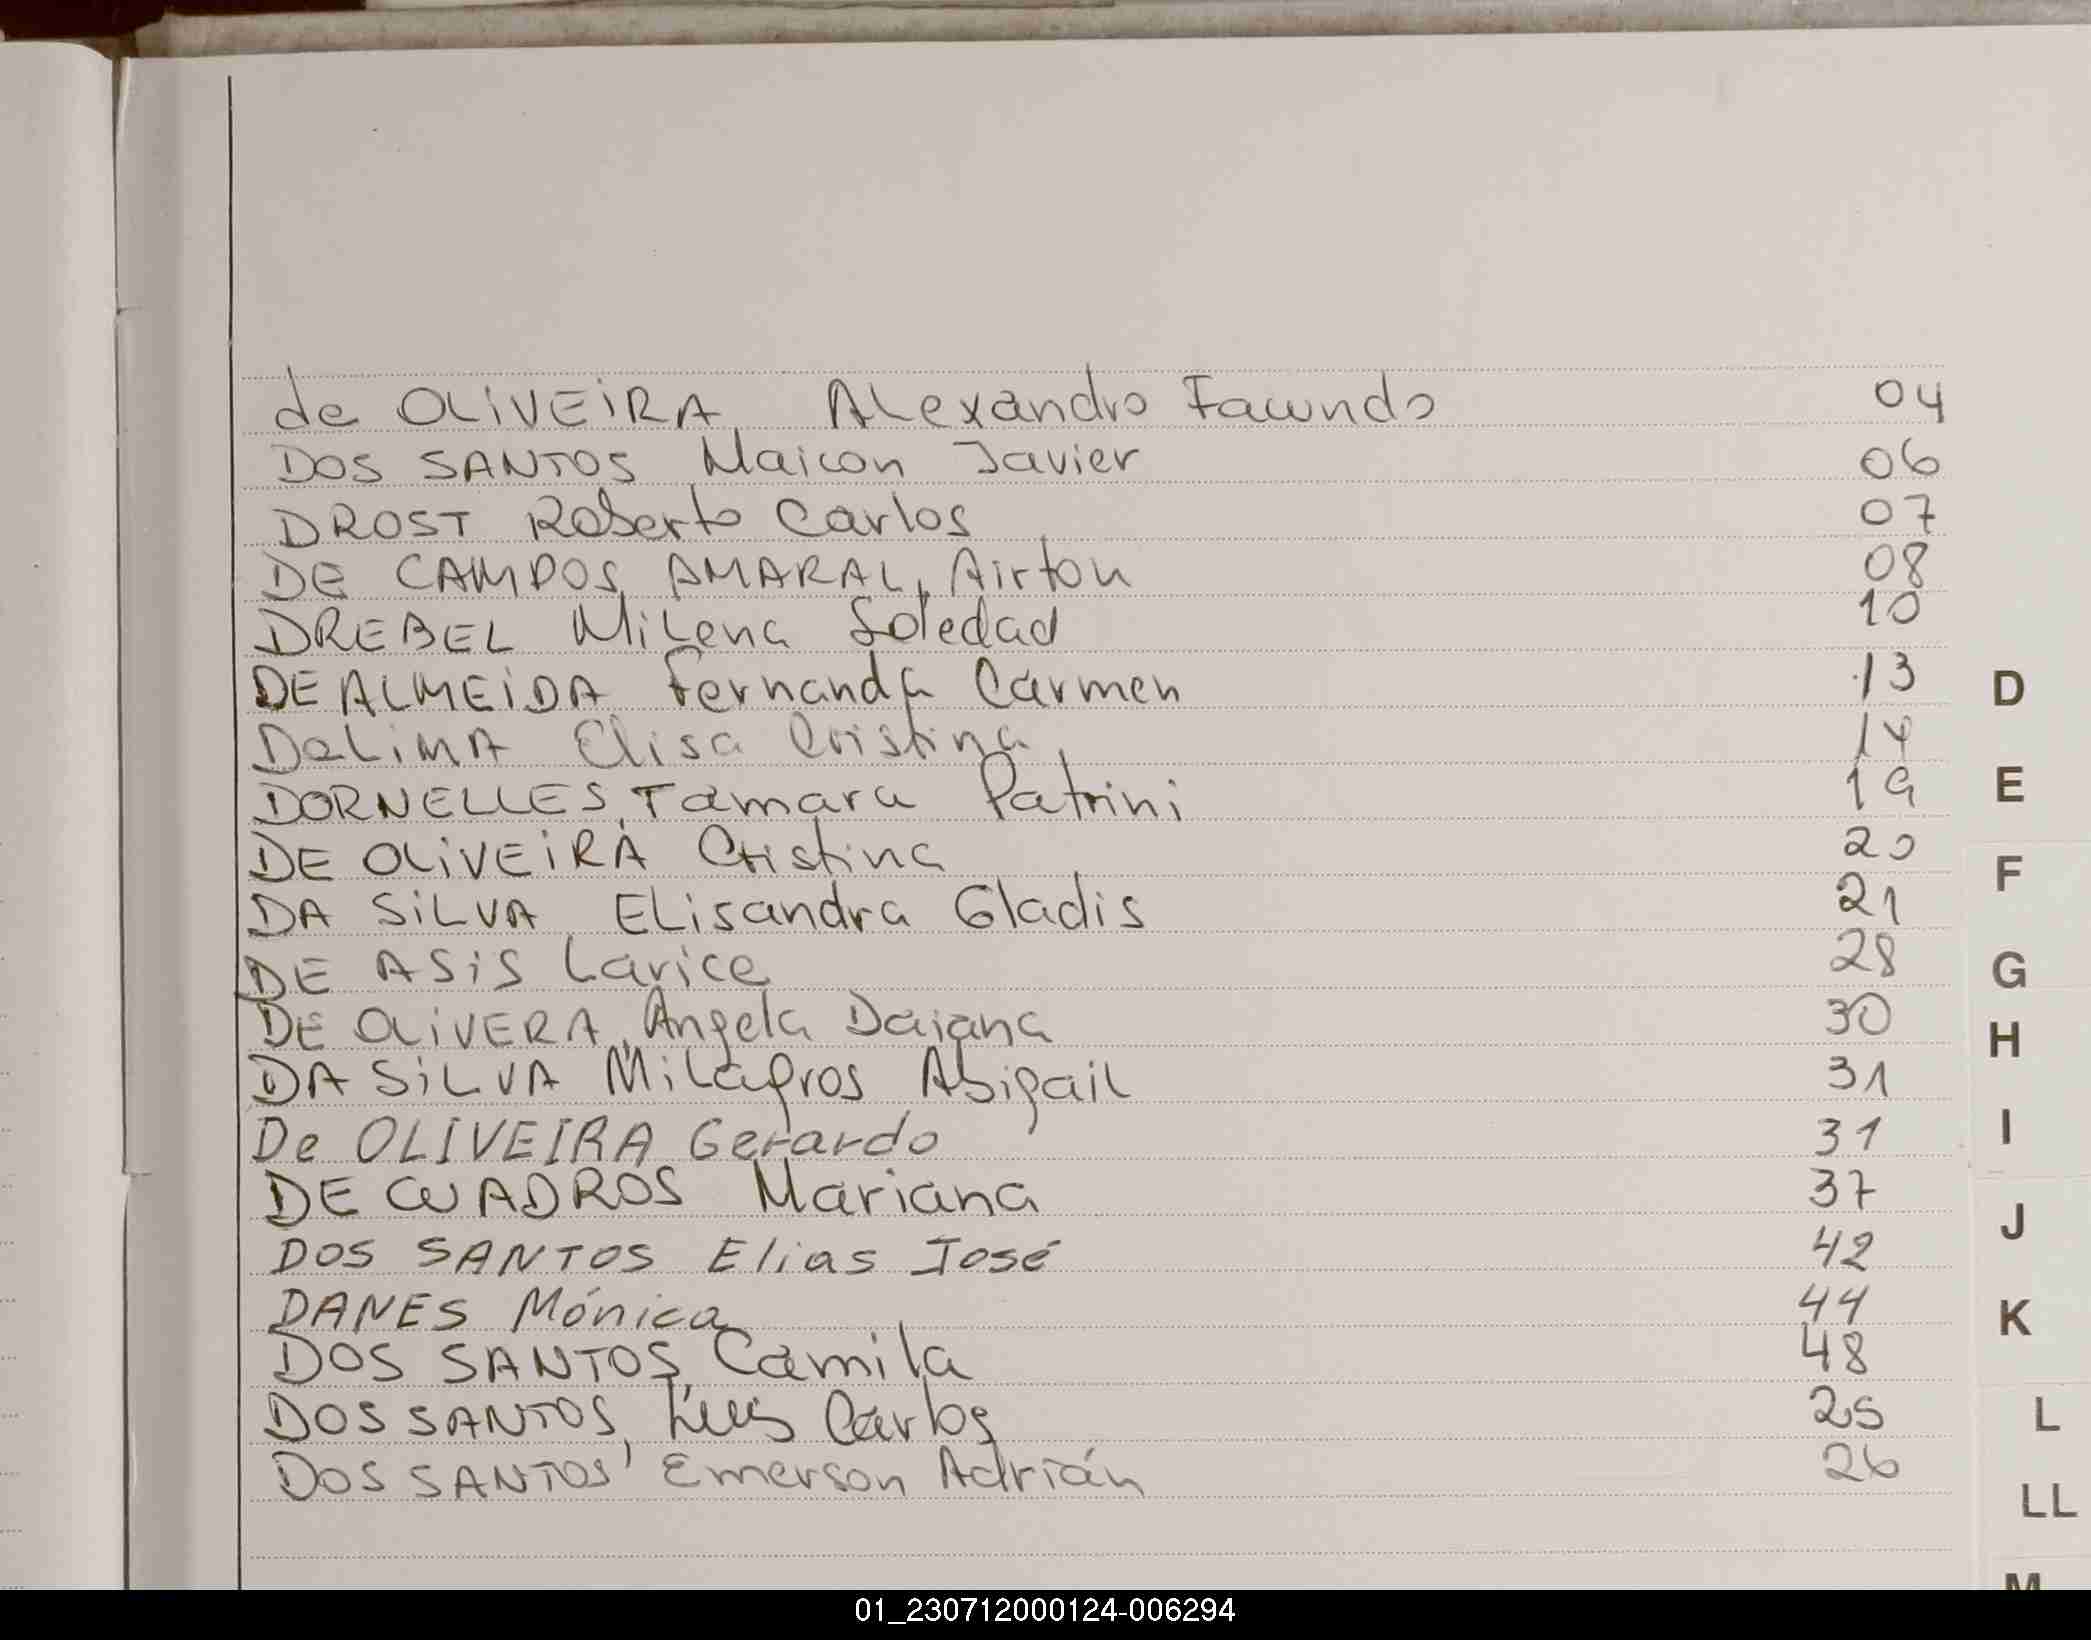 de OLIVEIRA, Alexandro Facundo 04
DOS SANTOS Maicon Javier 06
DROST Roberto Carlos 07
DE CAMPOS AMARAL, Airton 08
DREBEL Milena Soledad 10
DE ALMEIDA Fernanda Carmen 13
D
DeLiMA Elisa Cristina 14
DORNELLES, Tamara Patrini 19
E
DE OLIVEIRA Cristina 20
F
DA SILVA Elisandra Gladis 21
DE ASIS Larice 28
G
DE OLIVERA, Angela Daiana 30
H
DA SILVA Milagros Abigail 31
De OLIVEIRA Gerardo 31
I
DE CUADROS Mariana 37
J
DOS SANTOS Elias José 42
DANES Mónica 44
K
DOS SANTOS, Camila 48
DOS SANTOS, Luis Carlos 25
L
DOS SANTOS Emerson Adrián 26
LL
M
01_230712000124-006294